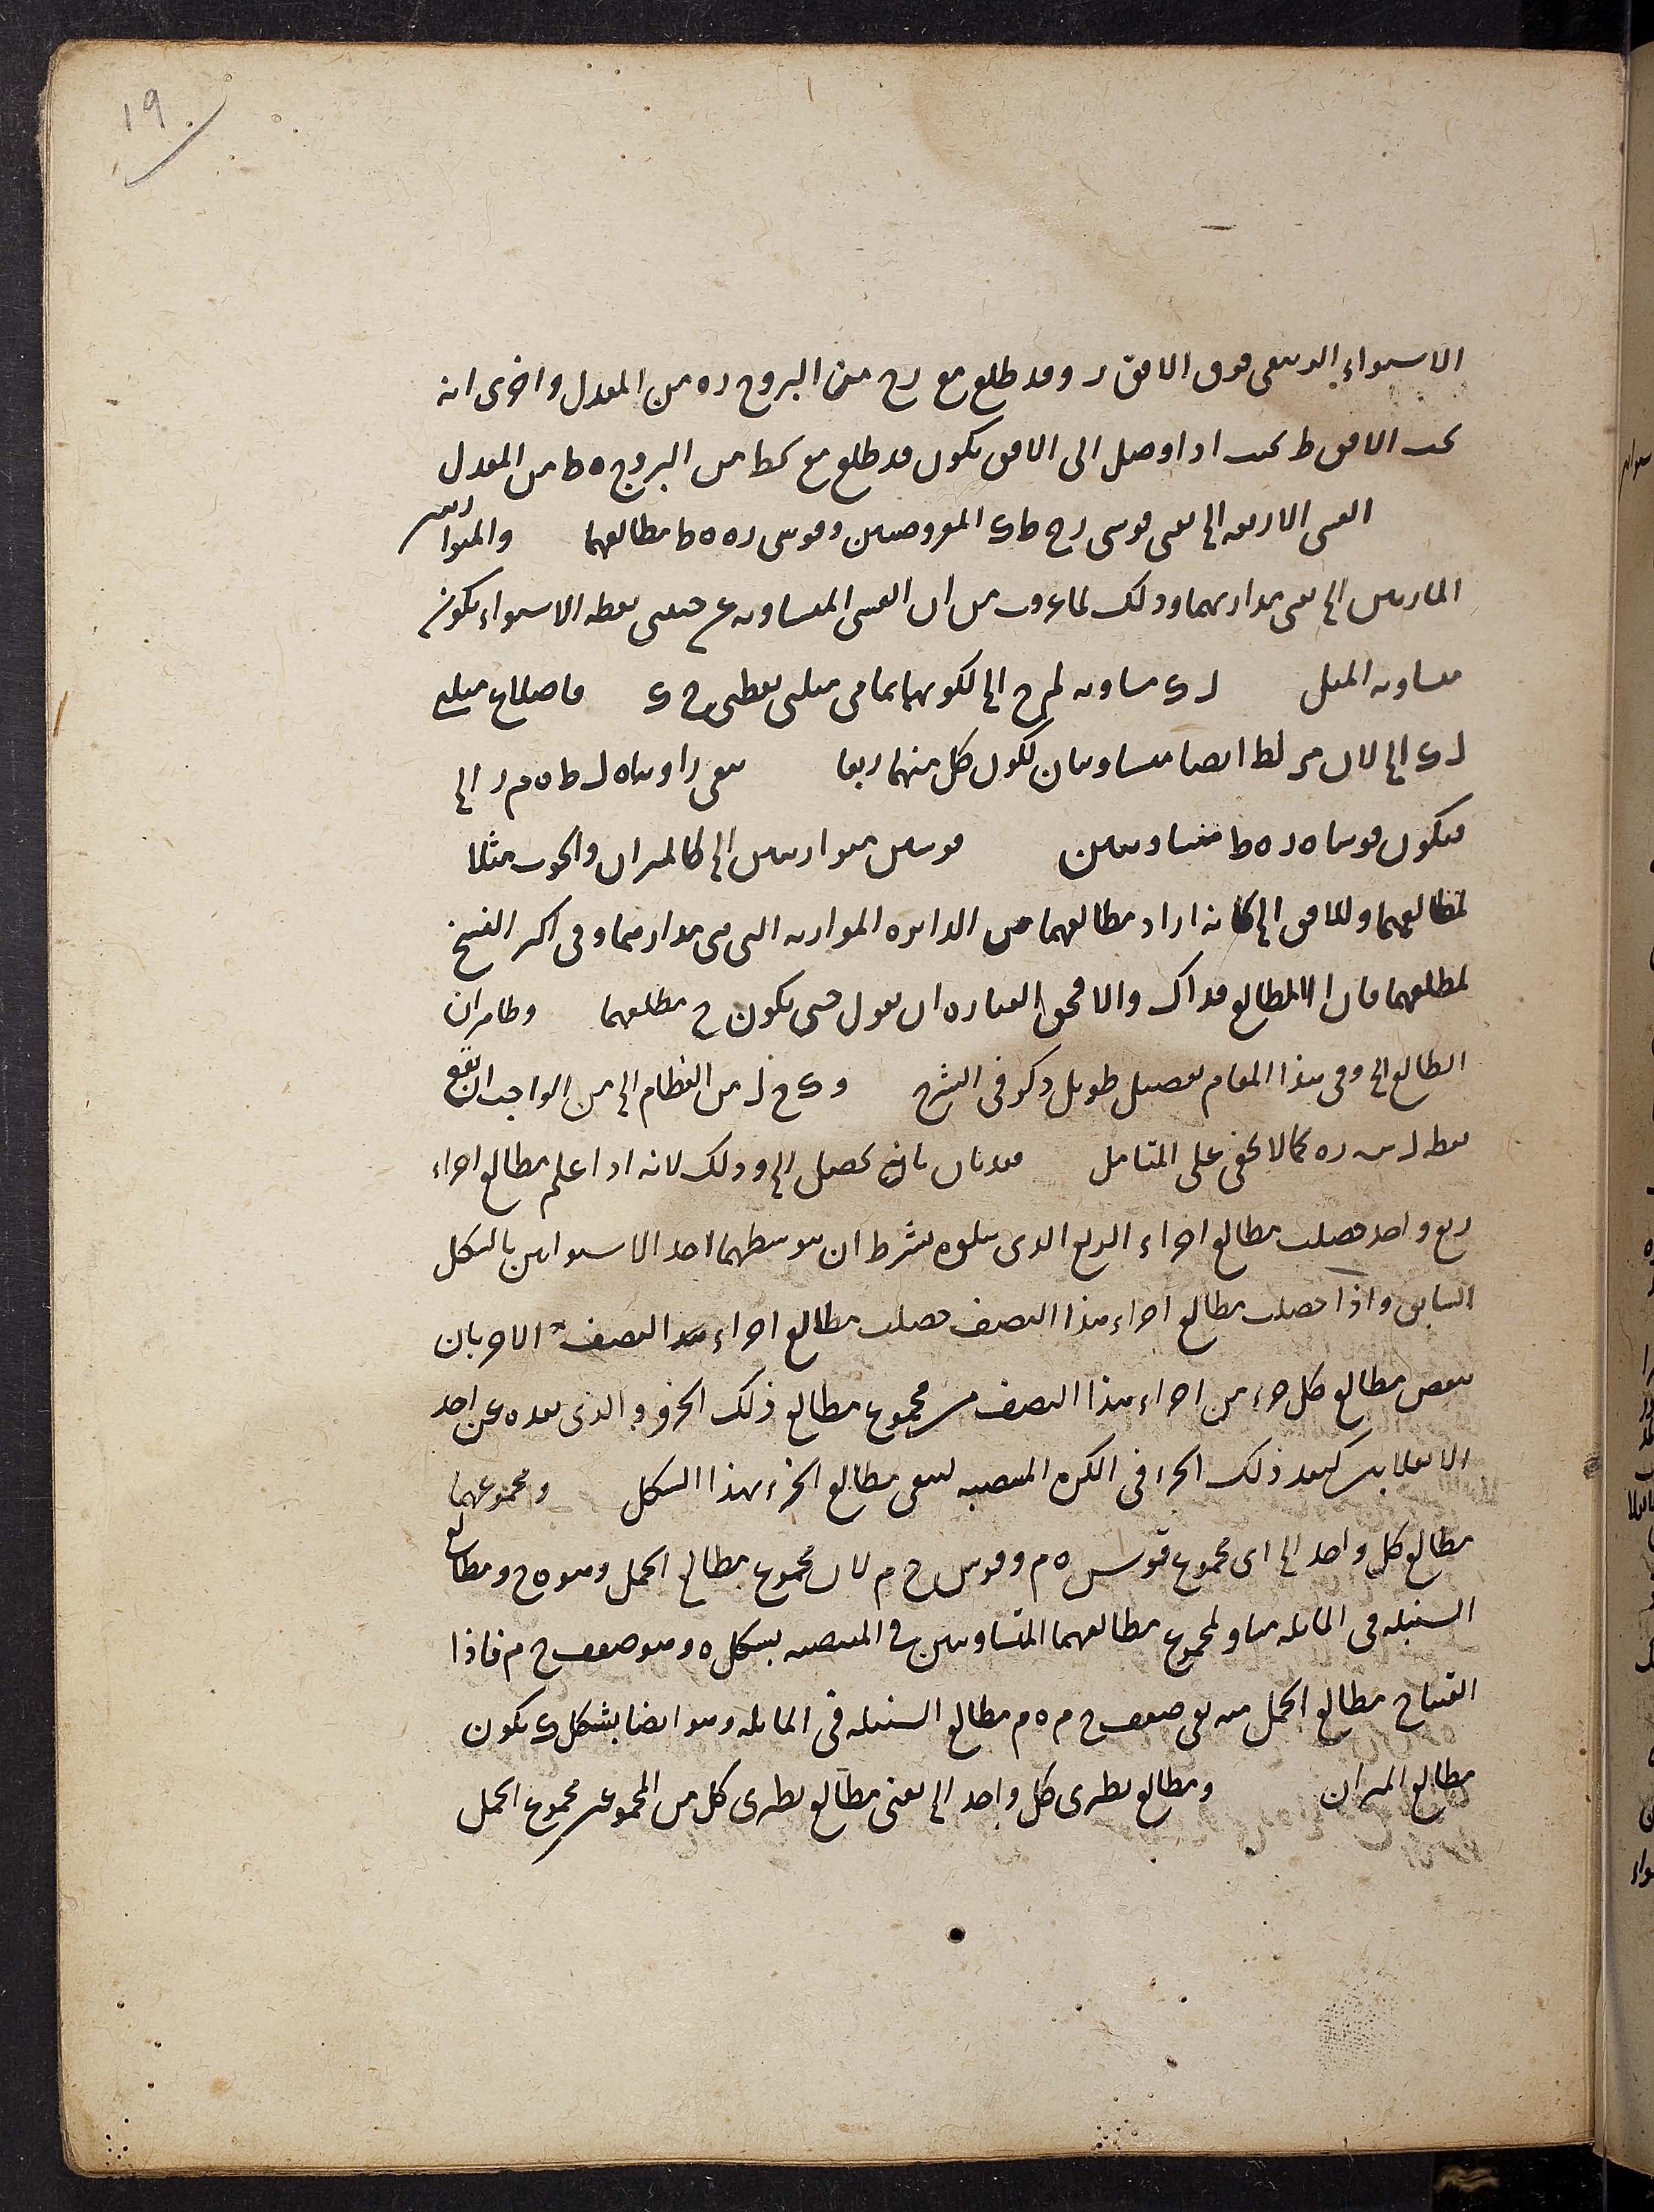 ١٩
الاستواء الربيعى فوق الافق ر وقد طلع مع رح من البروج ره من المعدل واخرى انه
تحت الافق ط بحيث اذا وصل الى الافق يكون قد طلع مع كط من البروج ه ط من المعدل
القسى الاربعة الخ يعنى قوسى رح ط ك المفروضين وقوسى ره ه ط مطالعهما والمتوازيين
المارين الخ يعنى مداريهما وذلك لما عرف من ان القسى المتساوية عن جنبتى نقطة الاستواء يكون
متساوية الميل ل ك مساوية لم ح الخ لكونهما تمامى ميلى نقطتى ح ك فاضلاع ميلى
ل ك الخ لان م ر لط ايضا متساويان لكون كل منهما ربعا يبقى زاويتاه ل ط ه م ر الخ
فيكون قوسا ه ر ه ط متساويين قوسين متوازيين الخ كالميزان والحوت مثلا
لمطالعهما وللافق الخ كانه اراد مطالعهما من الدايرة الموازية التى هى مدارهما وفى اكثر النسخ
لمطلعهما فان المطالع فذاك والا فحق العباره ان يقول حتى يكون ح مطلعهما وظاهر ان
الطالع الخ وفى هذا المقام تفصيل طويل ذكر فى الشرح و ك ح ل من العظام الخ من الواجب ان يقع
نقطة ل بين ره كما لا يخفى على المتامل فقد بان بان تحصيل الخ وذلك لانه اذا علم مطالع اجزاء
ربع واحد حصلت مطالع اجزاء الربع الذى يتلوه بشرط ان يتوسطهما احد الاستوائين بالشكل
السابق واذا حصلت مطالع اجزاء هذا النصف حصلت مطالع اجزاء النصف الاخر بان
ينقص مطالع كل جزء من اجزاء هذا النصف من مجموع مطالع ذلك الجزو والذى بعده عن احد
الانقلابين كبعد ذلك الجزء فى الكره المنتصبه ليبقى مطالع الجزء بهذا الشكل ومجموعهما
مطالع كل واحد الخ اى مجموع قوس ه م وقوس ح م لان مجموع مطالع الحمل وهو ه ح ومطالع
السنبله فى المايله مساو لمجموع مطالعهما المتساويين فى المنتصبه بشكل ه وهو ضعف ح م فاذا
القينا ح مطالع الحمل منه بقى ضعف ح م ه م مطالع السنبله فى المايله وهو ايضا بشكل ك يكون
مطالع الميزان ومطالع نظيرى كل واحد الخ يعنى مطالع نظيرى كل من المجموعين مجموع الحمل